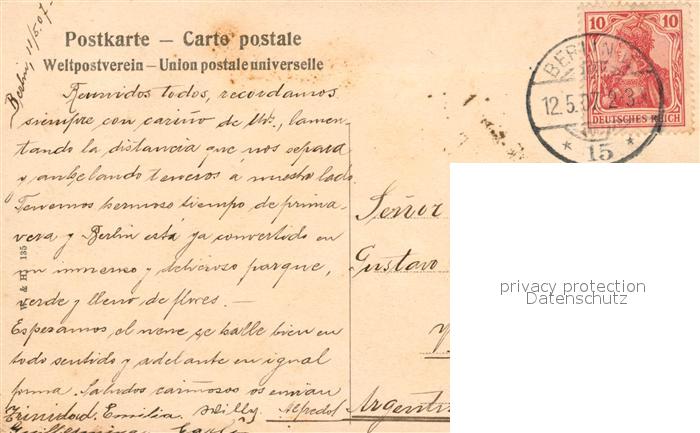 Berlin, 11/5.07.
Postkarte – Carto postale
Weltpostverein – Union postale universelle
Reunidos todos, recordamos
siempre con cariño de Uds., lamen-
tando la distancia que nos separa
y anhelando teneros á nuestro lado.
Tenemos hermoso tiempo de prima-
vera y Berlin está ya convertido en
un inmenso y delicioso parque,
verde y lleno de flores. —
Esperamos el nene se halle bien en
todo sentido y adelante en igual
forma. Saludos cariñosos os envian
Trinidad. Emilia. Willy. Alfredo
W. & H. 135
10 10
DEUTSCHES REICH
BERLIN
12.5.07. 2-3
* 15 *
Señor
Gustavo
Argenti
privacy protection
Datenschutz